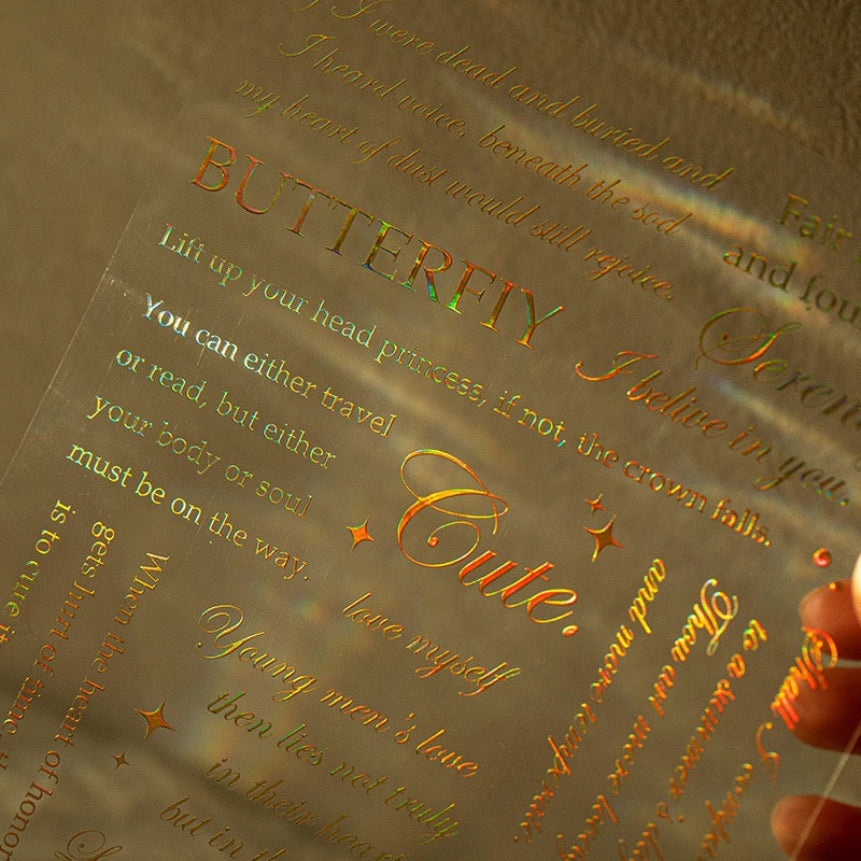 I were dead and buried and
I heard voice, beneath the sod
my heart of dust would still rejoice.
BUTTERFlY
Lift up your head princess, if not, the crown falls.
You can either travel
or read, but either
your body or soul
must be on the way.
Fair
and fou
Seren
I belive in you.
Cute.
love myself
Young men's love
then lies not truly
in their hear
but in th
When the heart of honor
gets hurt of time
is to cure it
Shall I
to a summer's
Thou art more
and more tempe